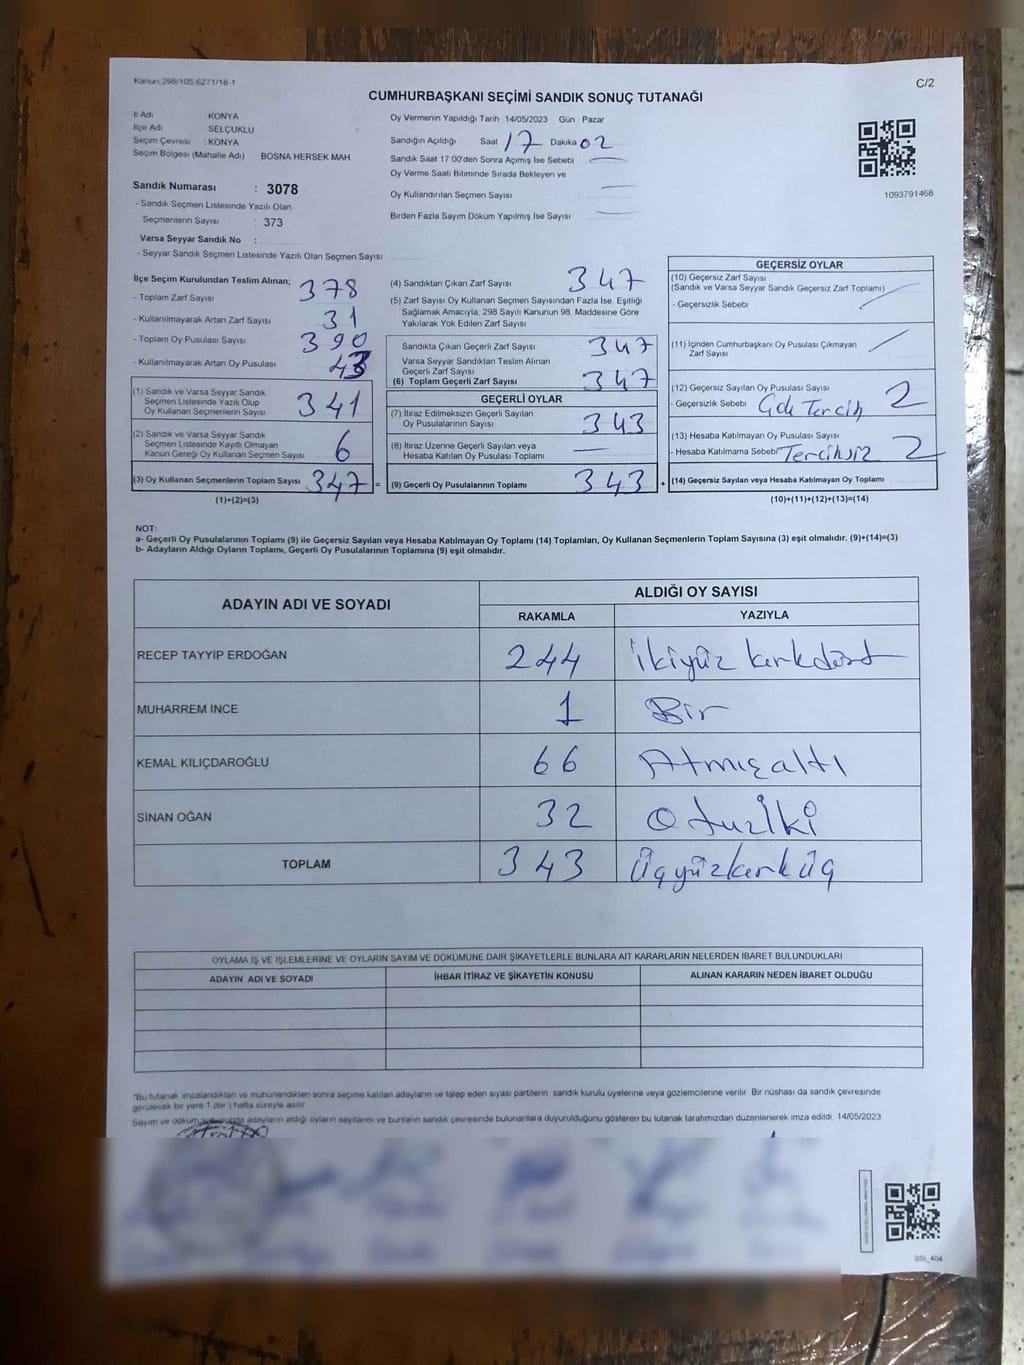 Kanun:298/105,6271/18-1
C/2
CUMHURBAŞKANI SEÇİMİ SANDIK SONUÇ TUTANAĞI
İl Adı KONYA
İlçe Adı SELÇUKLU
Seçim Çevresi : KONYA
Seçim Bölgesi (Mahalle Adı) BOSNA HERSEK MAH
Sandık Numarası : 3078
- Sandık Seçmen Listesinde Yazılı Olan
Seçmenlerin Sayısı : 373
Varsa Seyyar Sandık No :
- Seyyar Sandık Seçmen Listesinde Yazılı Olan Seçmen Sayısı
Oy Vermenin Yapıldığı Tarih 14/05/2023 Gün : Pazar
Sandığın Açıldığı Saat 17 Dakika 02
Sandık Saat 17:00'den Sonra Açılmış İse Sebebi
Oy Verme Saati Bitiminde Sırada Bekleyen ve
Oy Kullandırılan Seçmen Sayısı
Birden Fazla Sayım Döküm Yapılmış İse Sayısı
1093791468
İlçe Seçim Kurulundan Teslim Alınan;
- Toplam Zarf Sayısı 378
- Kullanılmayarak Artan Zarf Sayısı 31
- Toplam Oy Pusulası Sayısı 390
- Kullanılmayarak Artan Oy Pusulası 43
(1) Sandık ve Varsa Seyyar Sandık
Seçmen Listesinde Yazılı Olup
Oy Kullanan Seçmenlerin Sayısı 341
(2) Sandık ve Varsa Seyyar Sandık
Seçmen Listesinde Kayıtlı Olmayan
Kanun Gereği Oy Kullanan Seçmen Sayısı 6
(3) Oy Kullanan Seçmenlerin Toplam Sayısı 347 =
(1)+(2)=(3)
(4) Sandıktan Çıkan Zarf Sayısı 347
(5) Zarf Sayısı Oy Kullanan Seçmen Sayısından Fazla İse, Eşitliği
Sağlamak Amacıyla, 298 Sayılı Kanunun 98. Maddesine Göre
Yakılarak Yok Edilen Zarf Sayısı
Sandıkta Çıkan Geçerli Zarf Sayısı 347
Varsa Seyyar Sandıktan Teslim Alınan
Geçerli Zarf Sayısı
(6) Toplam Geçerli Zarf Sayısı 347
GEÇERLİ OYLAR
(7) İtiraz Edilmeksizin Geçerli Sayılan
Oy Pusulalarının Sayısı 343
(8) İtiraz Üzerine Geçerli Sayılan veya
Hesaba Katılan Oy Pusulası Toplamı
(9) Geçerli Oy Pusulalarının Toplamı 343 +
GEÇERSİZ OYLAR
(10) Geçersiz Zarf Sayısı
(Sandık ve Varsa Seyyar Sandık Geçersiz Zarf Toplamı)
- Geçersizlik Sebebi
(11) İçinden Cumhurbaşkanı Oy Pusulası Çıkmayan
Zarf Sayısı
(12) Geçersiz Sayılan Oy Pusulası Sayısı 2
- Geçersizlik Sebebi Çok Tercih
(13) Hesaba Katılmayan Oy Pusulası Sayısı 2
- Hesaba Katılmama Sebebi Tercihsiz
(14) Geçersiz Sayılan veya Hesaba Katılmayan Oy Toplamı
(10)+(11)+(12)+(13)=(14)
NOT:
a- Geçerli Oy Pusulalarının Toplamı (9) ile Geçersiz Sayılan veya Hesaba Katılmayan Oy Toplamı (14) Toplamları, Oy Kullanan Seçmenlerin Toplam Sayısına (3) eşit olmalıdır. (9)+(14)=(3)
b- Adayların Aldığı Oyların Toplamı, Geçerli Oy Pusulalarının Toplamına (9) eşit olmalıdır.
ADAYIN ADI VE SOYADI
ALDIĞI OY SAYISI
RAKAMLA YAZIYLA
RECEP TAYYİP ERDOĞAN 244 ikiyüz kırkdört
MUHARREM İNCE 1 Bir
KEMAL KILIÇDAROĞLU 66 Atmışaltı
SİNAN OĞAN 32 Otuziki
TOPLAM 343 Üçyüzkırküç
OYLAMA İŞ VE İŞLEMLERİNE VE OYLARIN SAYIM VE DÖKÜMÜNE DAİR ŞİKAYETLERLE BUNLARA AİT KARARLARIN NELERDEN İBARET BULUNDUKLARI
ADAYIN ADI VE SOYADI İHBAR İTİRAZ VE ŞİKAYETİN KONUSU ALINAN KARARIN NEDEN İBARET OLDUĞU
*Bu tutanak imzalandıktan ve mühürlendikten sonra seçime katılan adayların ve talep eden siyasi partilerin sandık kurulu üyelerine veya gözlemcilerine verilir. Bir nüshası da sandık çevresinde
görülecek bir yere 1 (bir) hafta süreyle asılır.
Sayım ve döküm sonunda adayların aldığı oyların sayılarını ve bunların sandık çevresinde bulunanlara duyurulduğunu gösteren bu tutanak tarafımızdan düzenlenerek imza edildi. 14/05/2023
SSI_404